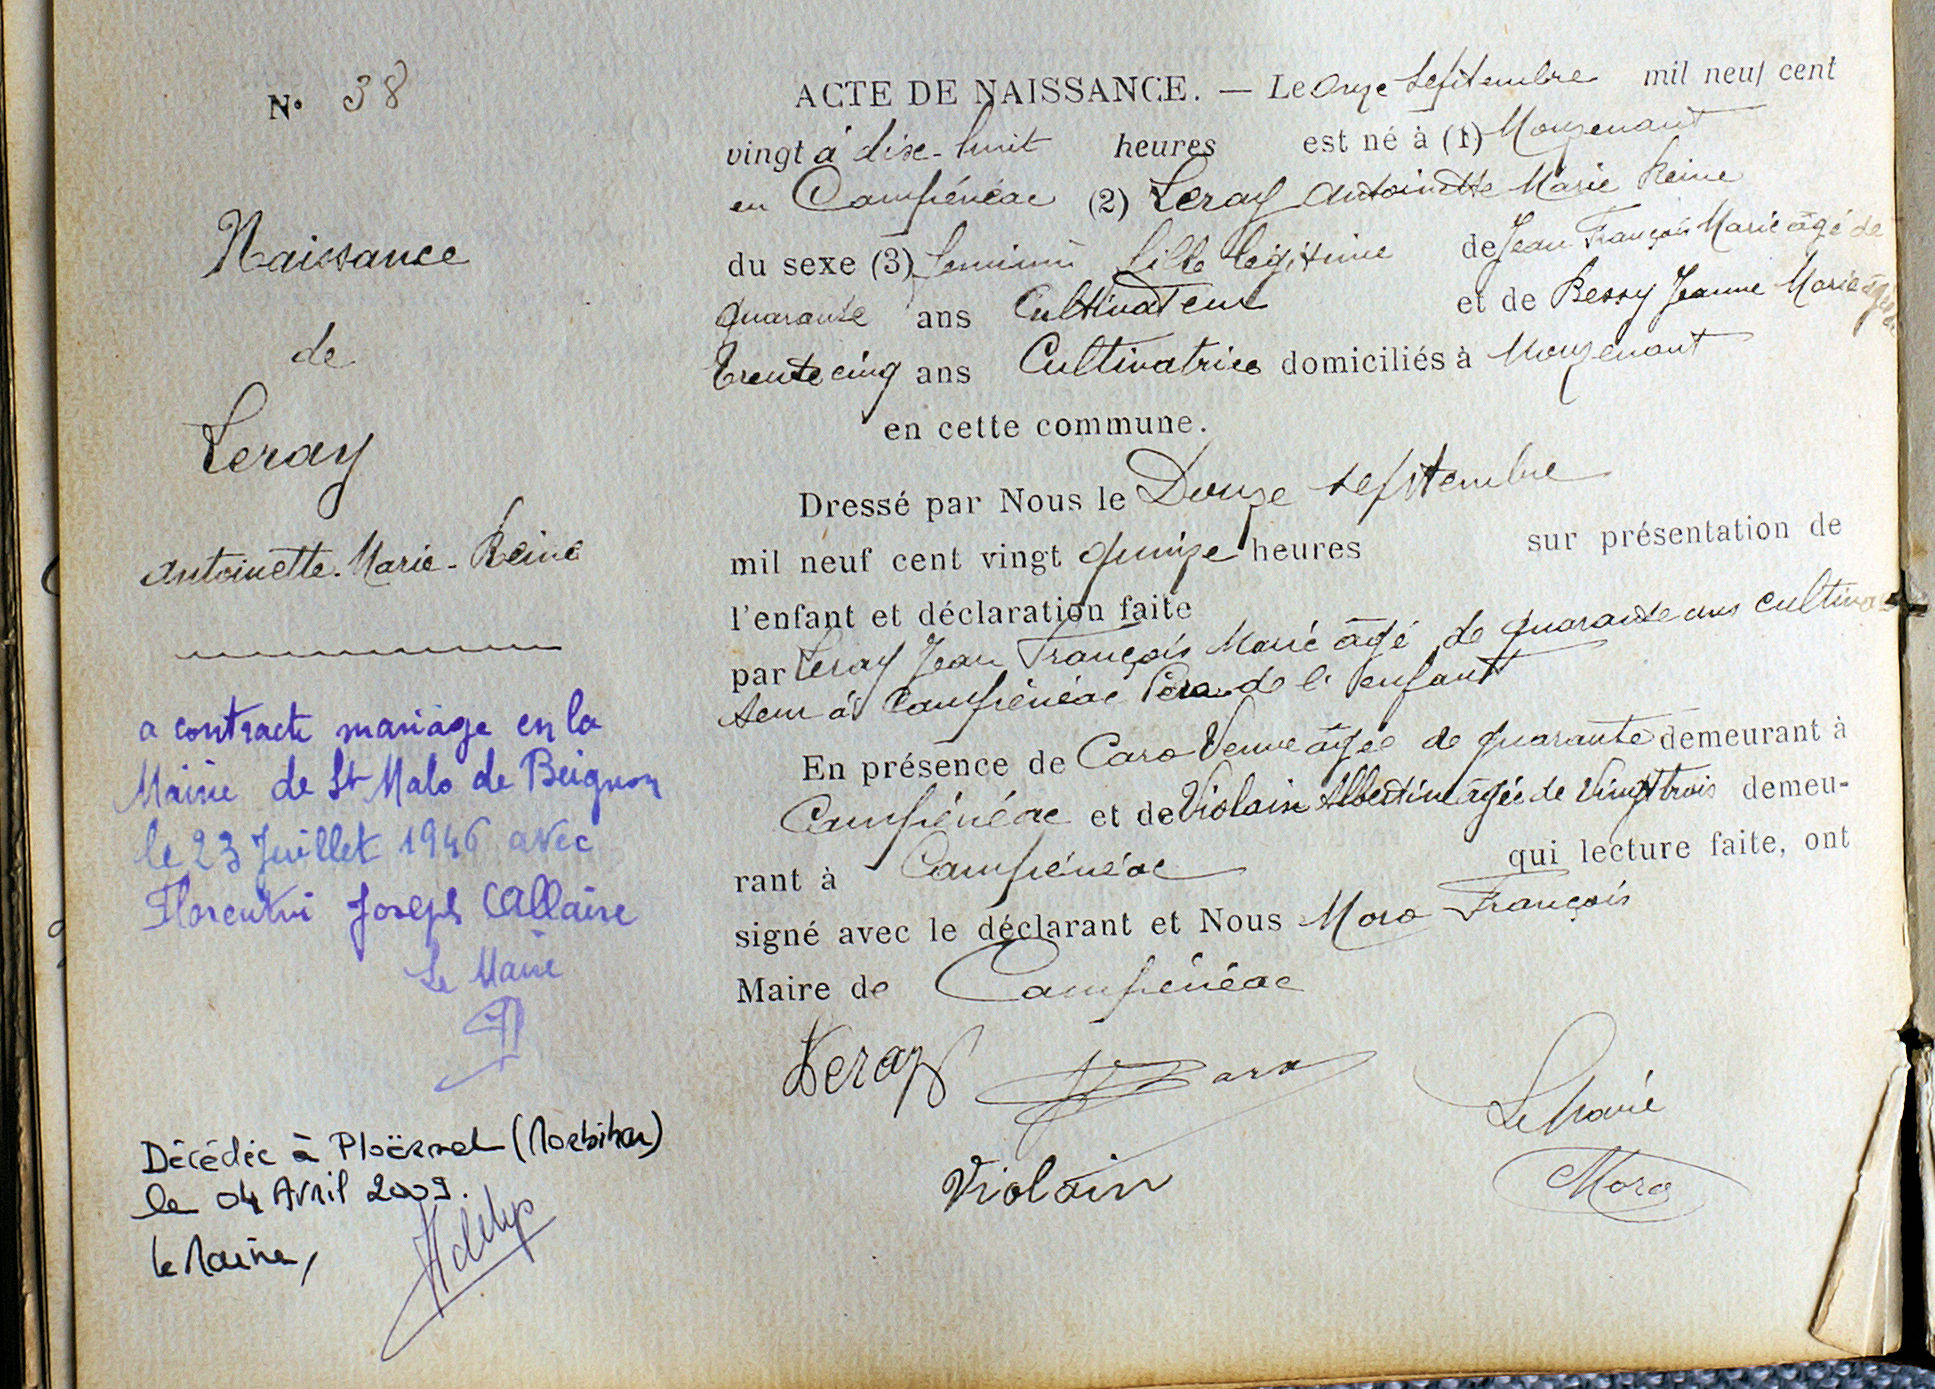 N° 38
Naissance
de
Leray
Antoinette-Marie-Reine
a contracté mariage en la
Mairie de St Malo de Beignon
le 23 Juillet 1946 avec
Florentin Joseph Allaire
Le Maire
Décédée à Ploërmel (Morbihan)
le 04 Avril 2009.
le Maire,
ACTE DE NAISSANCE. — Le Onze Septembre mil neuf cent
vingt à dix-huit heures est né à (1) Mouzenant
en Campénéac (2) Leray Antoinette Marie Reine
du sexe (3) féminin fille légitime de Jean François Marie âgé de
quarante ans Cultivateur et de Bessy Jeanne Marie âgée de
trente cinq ans Cultivatrice domiciliés à Mouzenant
en cette commune.
Dressé par Nous le Douze septembre
mil neuf cent vingt quinze heures sur présentation de
l'enfant et déclaration faite
par Leray Jean François Marie âgé de quarante ans cultiva
teur à Campénéac Père de l'enfant
En présence de Caro Veuve âgée de quarante demeurant à
Campénéac et de Violain Albertine âgée de Vingt trois demeu-
rant à Campénéac qui lecture faite, ont
signé avec le déclarant et Nous Moro François
Maire de Campénéac
Leray Caro Le Maire
Violain Moro